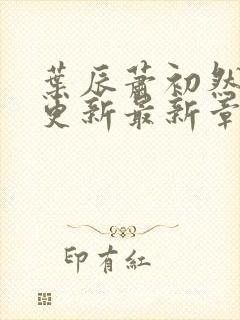 葉辰蕭初然
更新最新章
印有紅